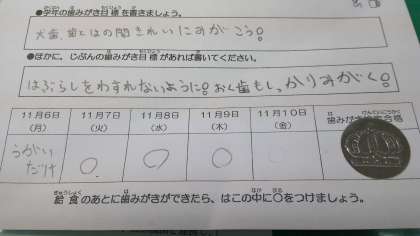 ●学年の歯みがき目標を書きましょう。
犬歯、歯とはの間きれいにみがこう!
●ほかに、じぶんの歯みがき目標があれば書いてください。
はぶらしをわすれないように!おく歯もしっかりみがく!
11月6日(月) 11月7日(火) 11月8日(水) 11月9日(木) 11月10日(金) 歯みがき
うがいだけ ○ ○ ○ ○
給食のあとに歯みがきができたら、はこの中に○をつけましょう。